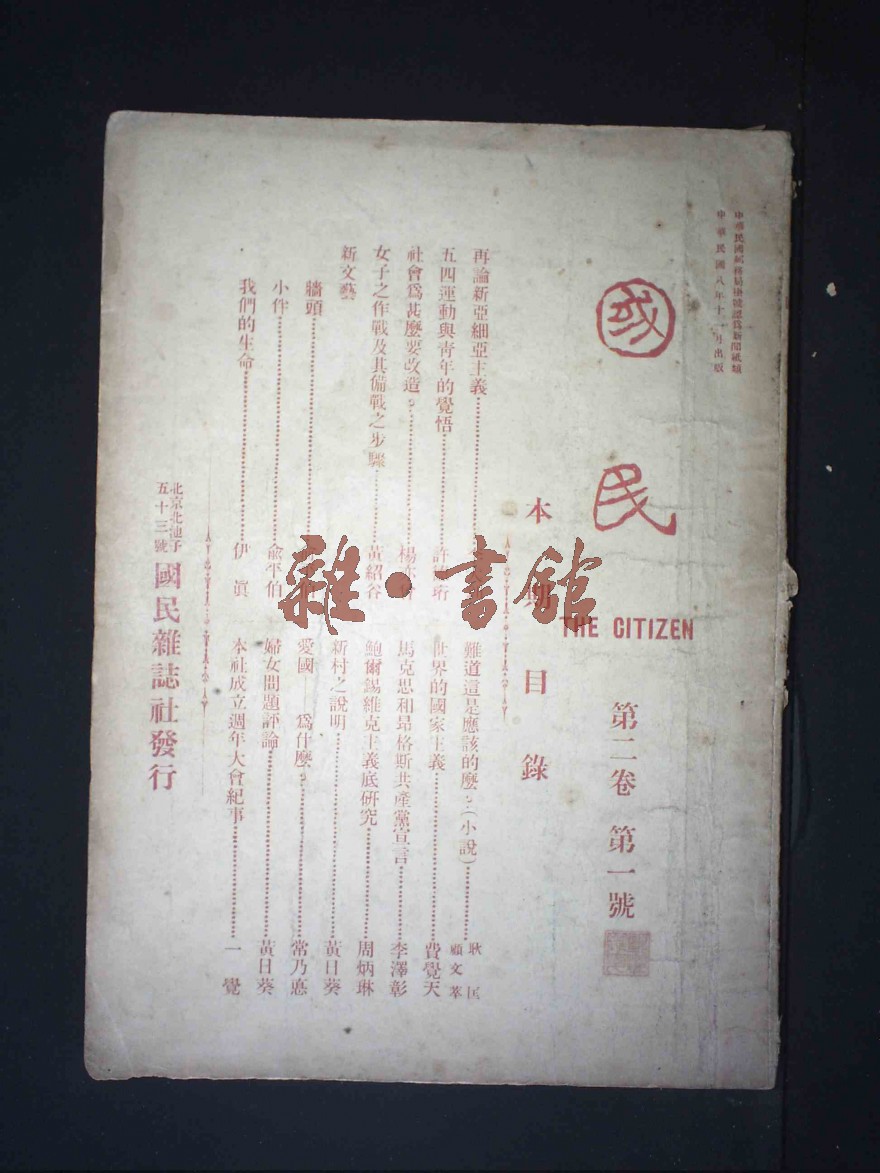 中華民國郵務局掛號認爲新聞紙類
中華民國八年十一月出版
國民
THE CITIZEN
第二卷 第一號
本期目錄
再論新亞細亞主義
五四運動與青年的覺悟 許
社會爲甚麼要改造? 楊
女子之作戰及其備戰之步驟 黃紹谷
新文藝
牆頭
小作 俞平伯
我們的生命 伊眞
難道這是應該的麼?(小說) 耿匡 顧文萃
世界的國家主義 費覺天
馬克思和昂格斯共產黨宣言 李澤彰
鮑爾錫維克主義底研究 周炳琳
新村之說明 黃日葵
愛國——爲什麼? 常乃悳
婦女問題評論 黃日葵
本社成立週年大會紀事 一覺
北京北池子
五十三號
國民雜誌社發行
雜·書館